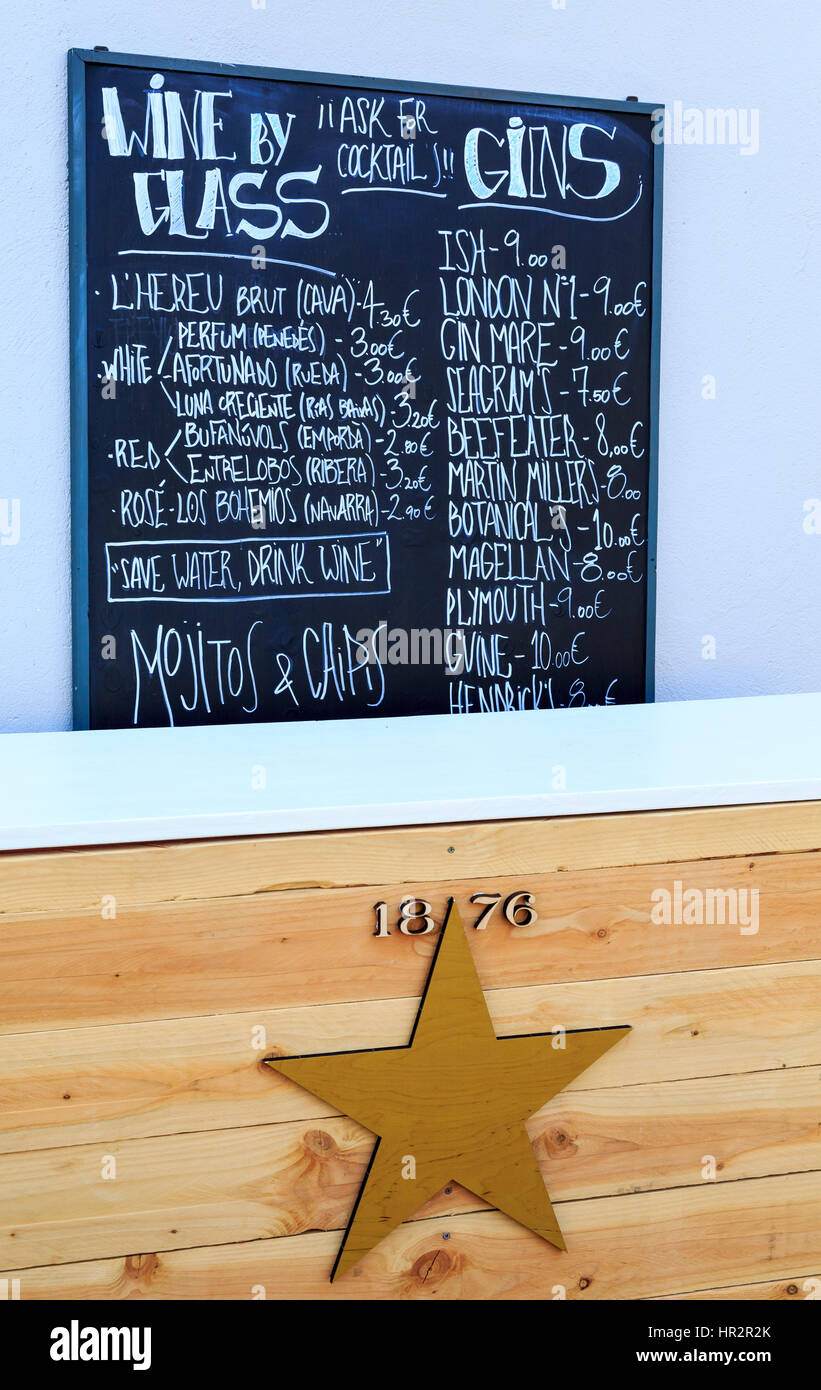 WINE BY
GLASS
¡¡ASK FOR
COCKTAIL'S!!
GINS
· L'HEREU BRUT (CAVA) - 4.30€
PERFUM (PENEDÈS) - 3.00€
· WHITE AFORTUNADO (RUEDA) - 3.00€
LUNA CRECIENTE (RIAS BAIXAS) 3.20€
BUFANÚVOLS (EMPORDÀ) - 2.80€
· RED
ENTRELOBOS (RIBERA) - 3.20€
· ROSÉ - LOS BOHEMIOS (NAVARRA) - 2.90€
"SAVE WATER, DRINK WINE"
MOJITOS & CAIPIS
ISH - 9.00
LONDON Nº1 - 9.00€
GIN MARE - 9.00€
SEAGRAM'S - 7.50€
BEEFEATER - 8,00€
MARTIN MILLERS - 8.00
BOTANICAL'S - 10.00€
MAGELLAN - 8.00€
PLYMOUTH - 9.00€
G'VINE - 10.00€
HENDRICK'S - 8.00€
1876
alamy stock photo
HR2R2K
www.alamy.com